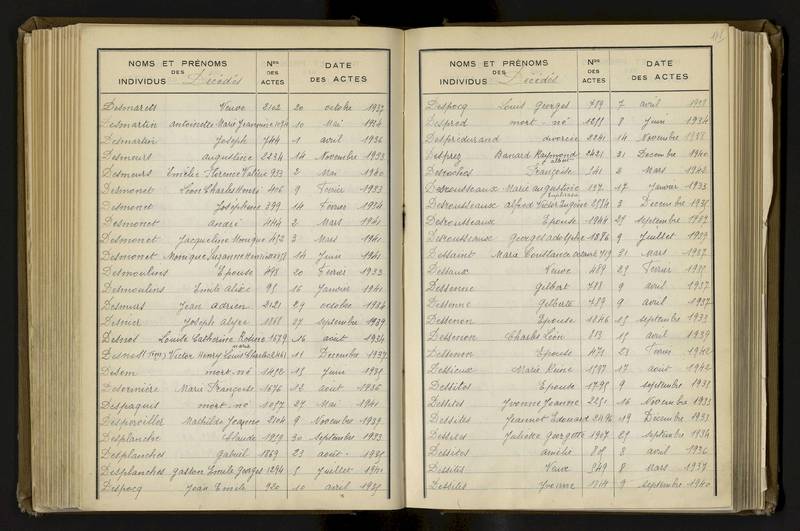 NOMS ET PRÉNOMS
DES
INDIVIDUS Décédés
Nos
DES
ACTES
DATE
DES ACTES
Desmarets Veuve 2102 20 octobre 1937
Desmartin antoinette Marie Jeannine 10 Mai 1934
Desmartin Joseph 744 1 avril 1936
Desmeurs augustine 2234 14 Novembre 1933
Desmeurs Emélie Florence Valérie 953 2 Mai 1940
Desmonet Léon Charles Henri 406 9 Février 1933
Desmonet Joséphine 399 14 Février 1934
Desmonet andré 444 2 Mars 1941
Desmonet Jacqueline Monique 452 3 Mars 1941
Desmonet Monique Suzanne 14 Juin 1941
Desmoulins Epouse 498 20 Février 1933
Desmoulins Emile Alix 95 16 Janvier 1941
Desmurs Jean Adrien 2121 29 octobre 1936
Desnier Joseph 1868 27 septembre 1939
Desnos Louise Catherine 1679 16 août 1934
Victor Henry Louis Charles 2461 11 Décembre 1937
Desom mort-né 1452 15 Juin 1938
Desornière Marie Françoise 1676 13 août 1936
Despaquis mort-né 1057 27 Mai 1941
Mathilde Jeanne 2104 9 Novembre 1939
Desplanche Claude 1959 30 septembre 1933
Desplanches Gabriel 1869 23 août
Desplanches Gaston Emile Georges 1294 5 Juillet 1940
Despocq Jean Emile 920 10 avril
NOMS ET PRÉNOMS
DES
INDIVIDUS Décédés
Nos
DES
ACTES
DATE
DES ACTES
Despocq Louis Georges 789 7 avril
Despred mort-né 1255 8 Juin 1934
Despredurand divorcée 2241 14 Novembre 1938
Desprez Raymond 2421 21 Décembre 1940
Françoise 541 2 Mars 1942
Desrousseaux Marie augustine 137 17 Janvier 1933
Desrousseaux alfred Victor Eugène 3 Décembre
Desrousseaux Epouse 1944 29 septembre 1937
Desrousseaux Georges adolphe 1386 9 Juillet 1939
Dessaint Marie Constance 719 31 Mars 1937
Dessaux Veuve 489 25 Février
Dessenne Gilbert 788 9 avril 1937
Dessenne Gilberte 789 9 avril 1937
Dessenon Epouse 1846 15 septembre 1933
Dessenon Charles Léon 813 15 avril 1939
Dessenon Epouse 471 23 Février 1942
Dessieux Marie Reine 1597 17 août 1942
Dessites Epouse 1795 9 septembre 1933
Dessites Yvonne Jeanne 2251 16 Novembre 1933
Dessites Jeannot Edouard 2496 19 Décembre 1933
Dessites Juliette Georgette 1907 25 septembre 1934
Dessites amélie 805 3 avril 1936
Dessites Veuve 549 8 Mars 1937
Dessites Yvonne 9 septembre 1940